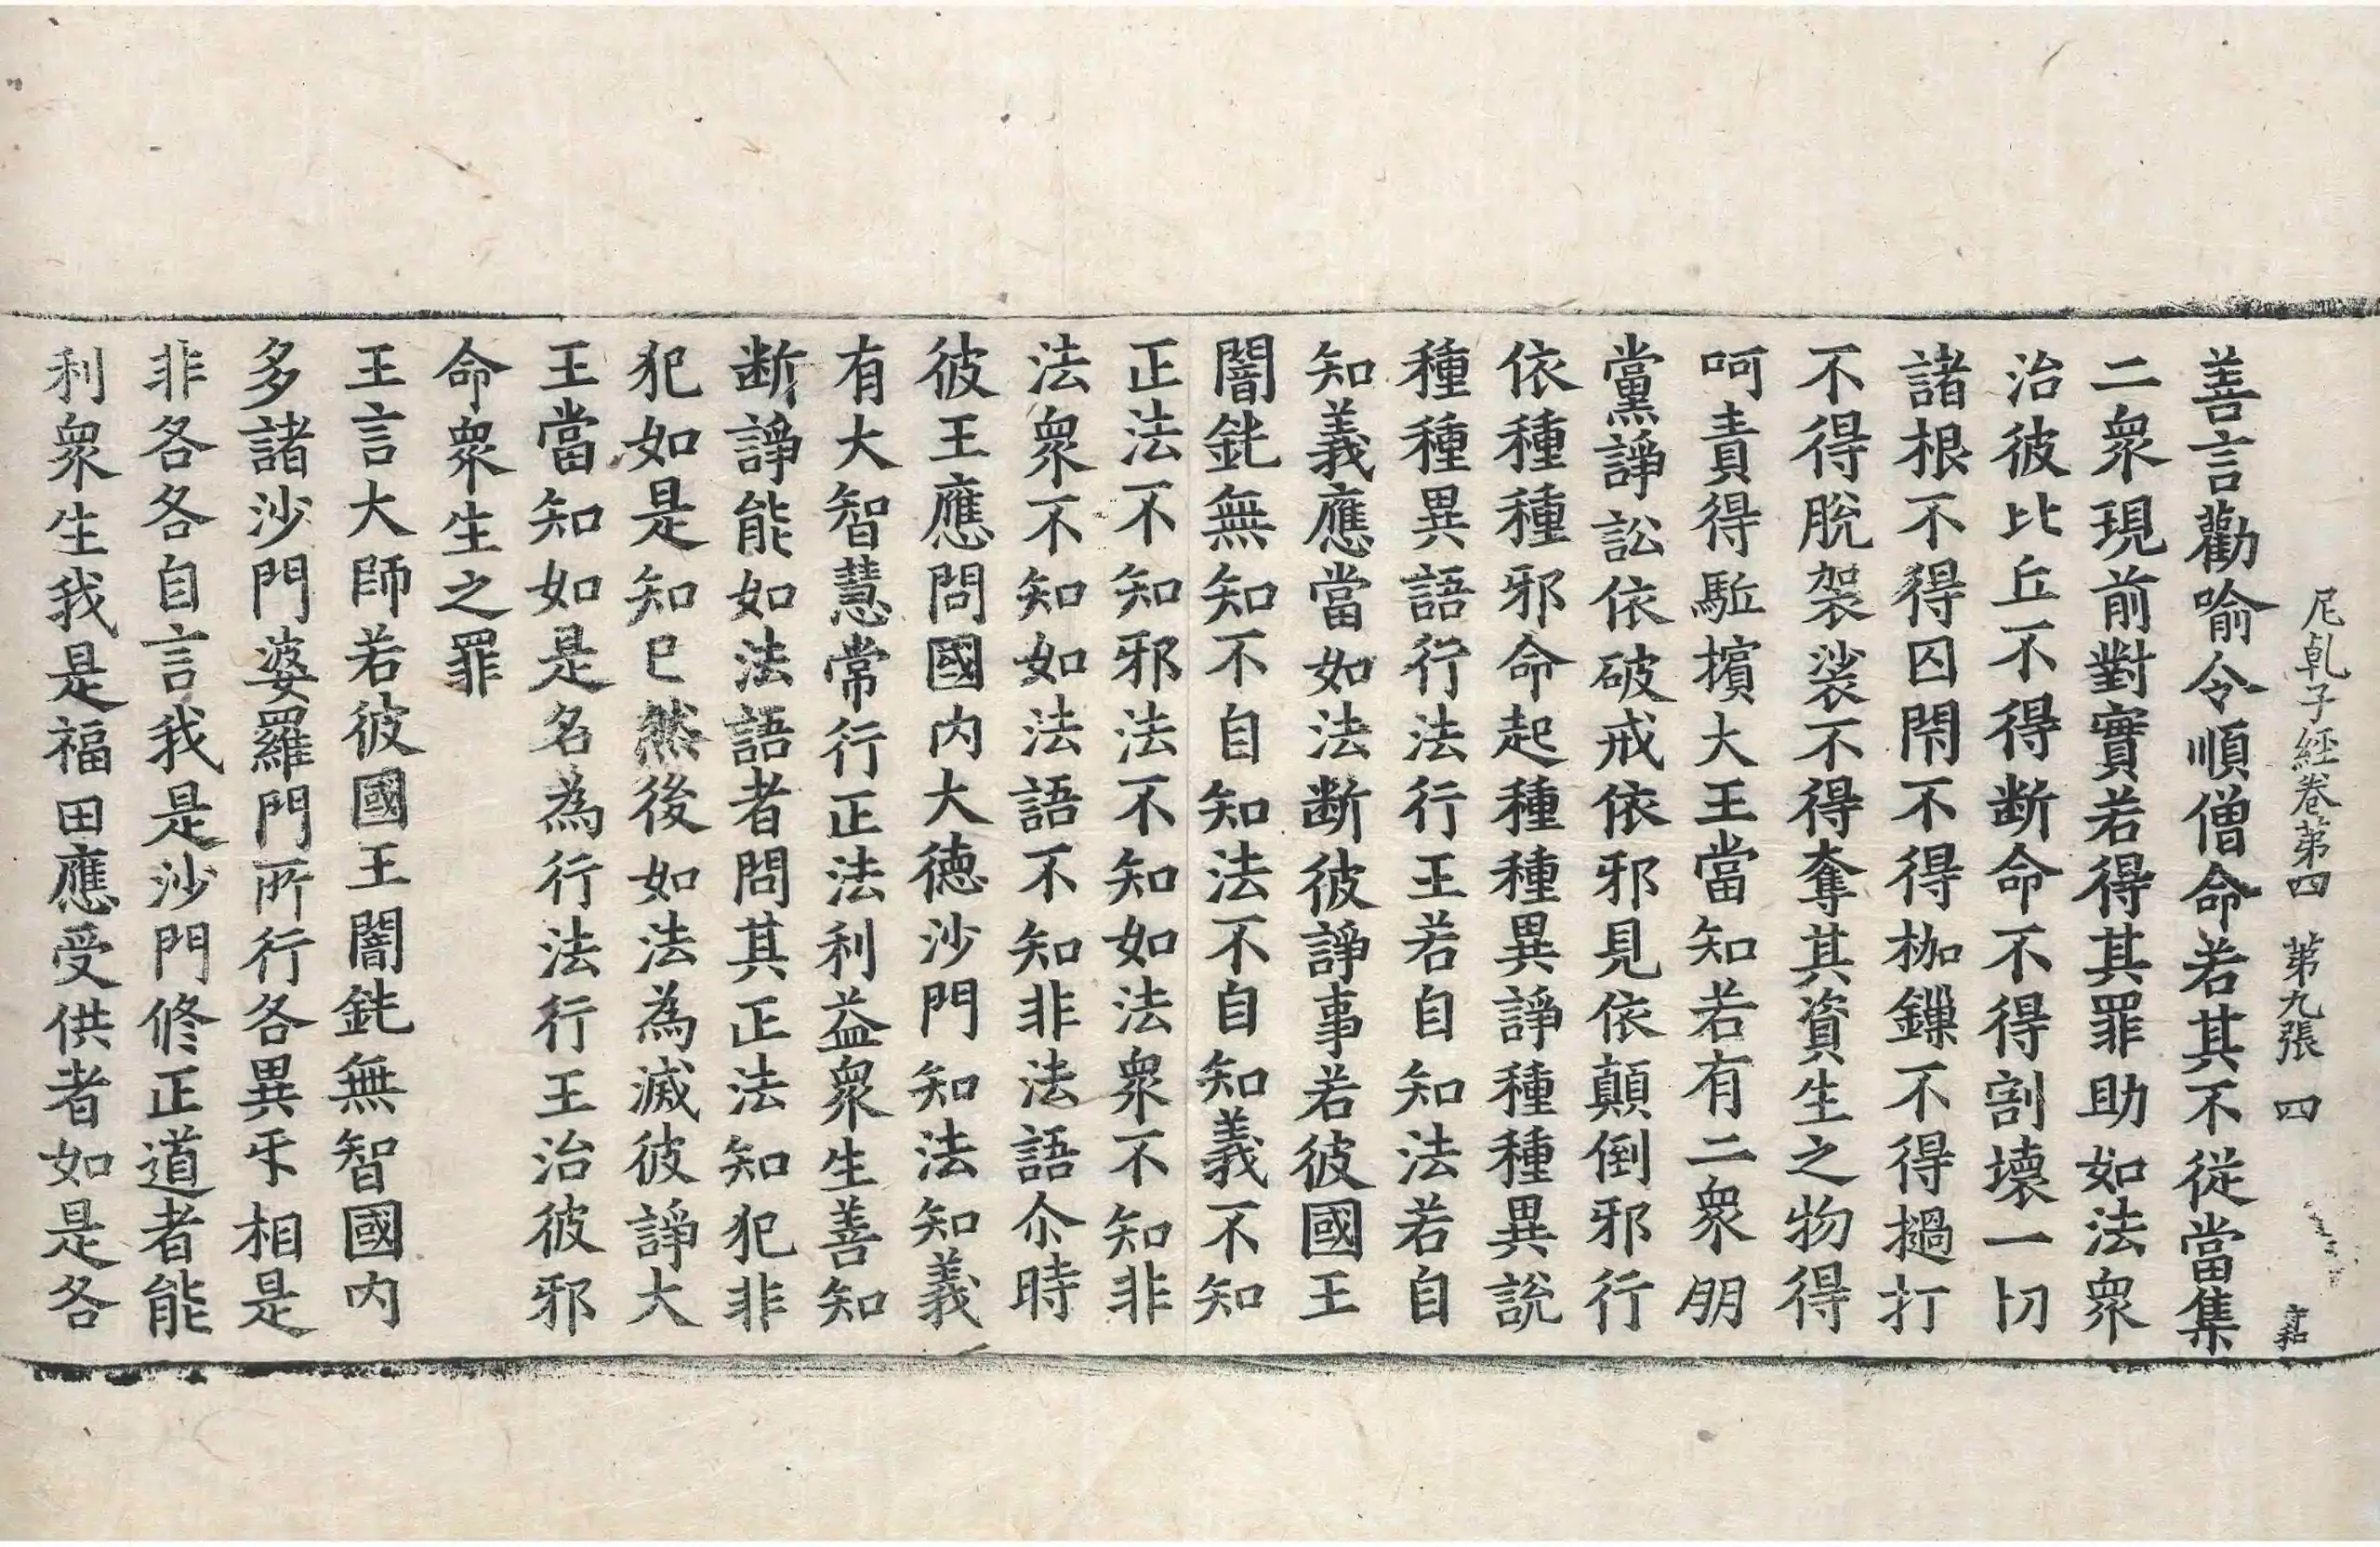 尼乹子經卷第四 第九張 四
善言勸喻令順僧命若其不從當集
二衆現前對實若得其罪助如法衆
治彼比丘不得断命不得割壞一切
諸根不得囚閇不得枷鏁不得撾打
不得脫袈裟不得奪其資生之物得
呵責得駈擯大王當知若有二衆朋
黨諍訟依破戒依邪見依顛倒邪行
依種種邪命起種種異諍種種異說
種種異語行法行王若自知法若自
知義應當如法断彼諍事若彼國王
闇鈍無知不自知法不自知義不知
正法不知邪法不知如法衆不知非
法衆不知如法語不知非法語尒時
彼王應問國內大德沙門知法知義
有大智慧常行正法利益衆生善知
断諍能如法語者問其正法知犯非
犯如是知已然後如法為滅彼諍大
王當知如是名為行法行王治彼邪
命衆生之罪
王言大師若彼國王闇鈍無智國內
多諸沙門婆羅門所行各異㸦相是
非各各自言我是沙門修正道者能
利衆生我是福田應受供者如是各